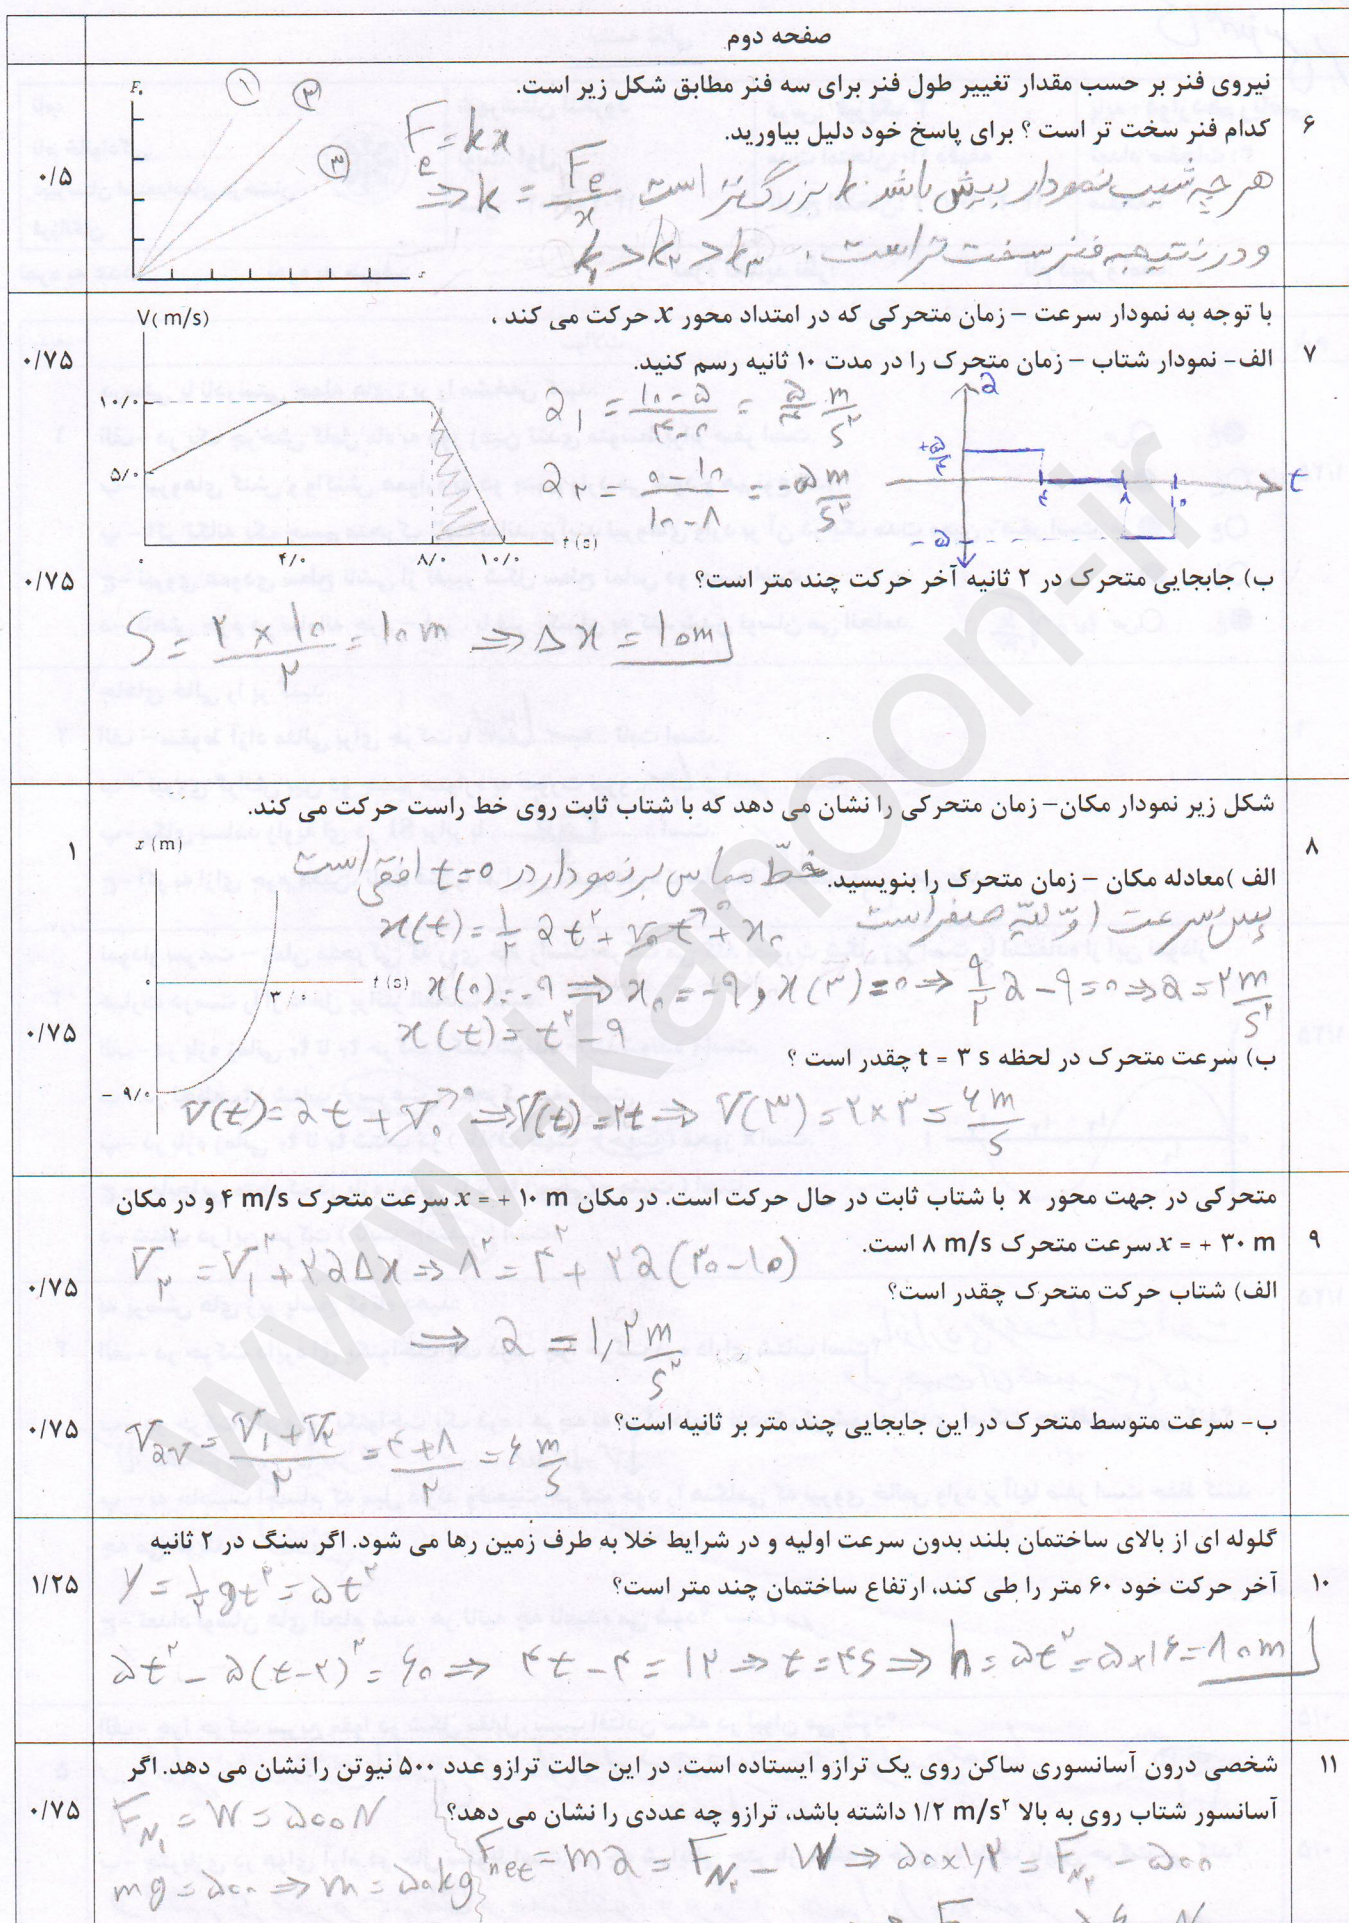 صفحه دوم
۶
نیروی فنر بر حسب مقدار تغییر طول فنر برای سه فنر مطابق شکل زیر است.
کدام فنر سخت تر است ؟ برای پاسخ خود دلیل بیاورید.
۰/۵
۱ ۲ ۳
F = kx
e
⇒ k = Fe/x هرچه شیب نمودار بیش باشد k بزرگتر است
و در نتیجه فنر سخت تر است. k₁ > k₂ > k₃
۷
با توجه به نمودار سرعت – زمان متحرکی که در امتداد محور x حرکت می کند ،
الف- نمودار شتاب – زمان متحرک را در مدت ۱۰ ثانیه رسم کنید.
۰/۷۵
V( m/s)
۱۰/۰
۵/۰
۰ ۴/۰ ۸/۰ ۱۰/۰ t (s)
a₁ = (۱۰-۵)/(۴-۰) = ۵/۴ m/s²
a₃ = (۰-۱۰)/(۱۰-۸) = -۵ m/s²
a
+۵/۴
۴ ۸ ۱۰ t
-۵
ب) جابجایی متحرک در ۲ ثانیه آخر حرکت چند متر است؟
۰/۷۵
S = (۲ × ۱۰)/۲ = ۱۰ m ⇒ Δx = ۱۰m
۸
شکل زیر نمودار مکان– زمان متحرکی را نشان می دهد که با شتاب ثابت روی خط راست حرکت می کند.
۱
x (m)
t (s)
۳/۰
- ۹/۰
الف )معادله مکان – زمان متحرک را بنویسید. خطّ مماس بر نمودار در t=۰ افقی است
پس سرعت اوّلیّه صفر است
x(t) = ½ at² + v₀t + x₀
x(۰) = -۹ ⇒ x₀ = -۹ و x(۳) = ۰ ⇒ ۹/۲ a - ۹ = ۰ ⇒ a = ۲ m/s²
x(t) = t² - ۹
ب) سرعت متحرک در لحظه t = ۳ s چقدر است ؟
۰/۷۵
V(t) = at + V₀ ⇒ V(t) = ۲t ⇒ V(۳) = ۲×۳ = ۶ m/s
۹
متحرکی در جهت محور x با شتاب ثابت در حال حرکت است. در مکان x = + ۱۰ m سرعت متحرک ۴ m/s و در مکان
x = + ۳۰ m سرعت متحرک ۸ m/s است.
V₂² = V₁² + ۲aΔx ⇒ ۸² = ۴² + ۲a(۳۰-۱۰)
الف) شتاب حرکت متحرک چقدر است؟
۰/۷۵
⇒ a = ۱,۲ m/s²
ب- سرعت متوسط متحرک در این جابجایی چند متر بر ثانیه است؟
۰/۷۵
Vav = (V₁+V₂)/۲ = (۴+۸)/۲ = ۶ m/s
۱۰
گلوله ای از بالای ساختمان بلند بدون سرعت اولیه و در شرایط خلا به طرف زمین رها می شود. اگر سنگ در ۲ ثانیه
آخر حرکت خود ۶۰ متر را طی کند، ارتفاع ساختمان چند متر است؟
۱/۲۵
y = ½ gt² = ۵t²
۵t² - ۵(t-۲)² = ۶۰ ⇒ ۴t - ۴ = ۱۲ ⇒ t = ۴s ⇒ h = ۵t² = ۵×۱۶ = ۸۰m
۱۱
شخصی درون آسانسوری ساکن روی یک ترازو ایستاده است. در این حالت ترازو عدد ۵۰۰ نیوتن را نشان می دهد. اگر
آسانسور شتاب روی به بالا ۱/۲ m/s² داشته باشد، ترازو چه عددی را نشان می دهد؟
۰/۷۵
F_N₁ = W = ۵۰۰ N
mg = ۵۰۰ ⇒ m = ۵۰kg
F_net = ma = F_N₂ - W ⇒ ۵۰×۱,۲ = F_N₂ - ۵۰۰
www.kanoon-ir